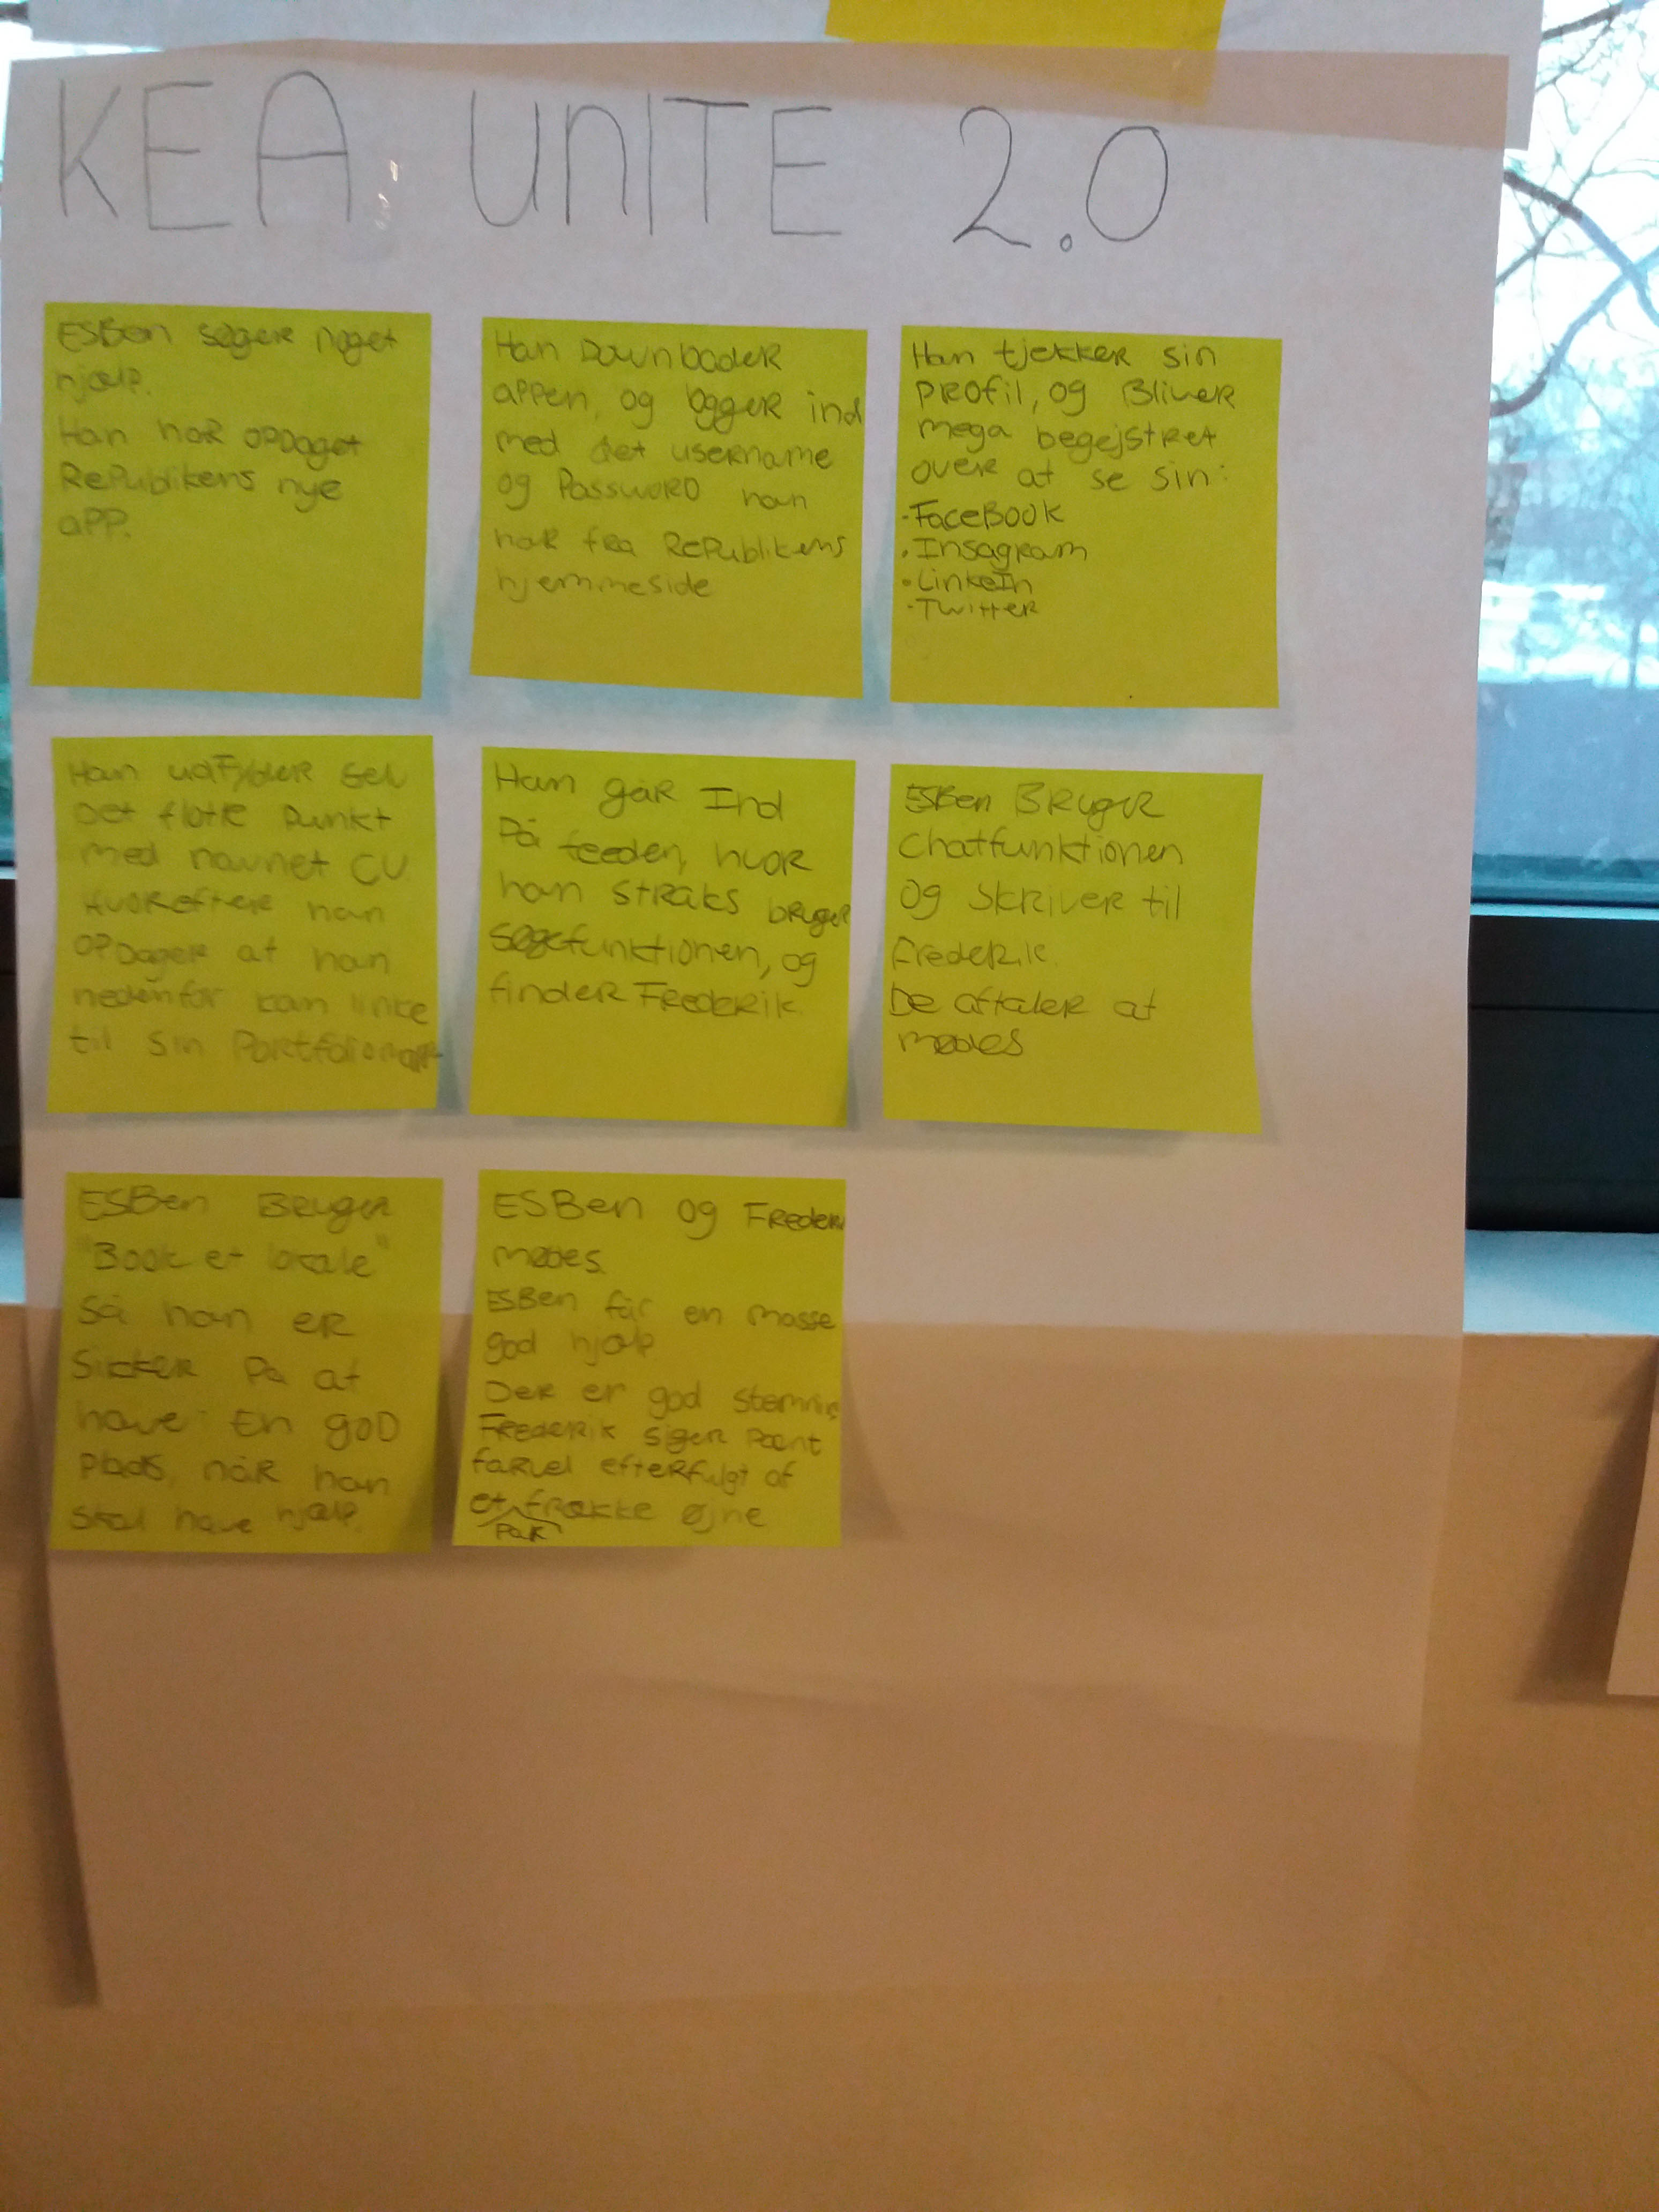 KEA UNITE 2.0
ESBen søger noget
hjælp.
Han har opdaget
Republikens nye
app.
Han Downloader
appen, og logger ind
med det username
og Password han
har fra Republikens
hjemmeside
Han tjekker sin
profil, og Bliver
mega begejstret
over at se sin:
- FaceBook
• Insagram
• LinkeIn
- Twitter
Han udfylder selv
Det flotte punkt
med navnet CV.
Hvorefter han
opdager at han
nedenfor kan linke
til sin
Han går Ind
På feeden, hvor
han straks bruger
søgefunktionen, og
finder Frederik
ESBen Bruger
Chatfunktionen
og skriver til
Frederik.
De aftaler at
mødes
ESBen Bruger
"Book et lokale"
så han er
sikker på at
have En goD
plads, når han
skal have hjælp.
ESBen og Frederi
mødes.
ESBen får en masse
god hjælp
Der er god stemning
Frederik siger pænt
farvel efterfulgt af
et par frække øjne